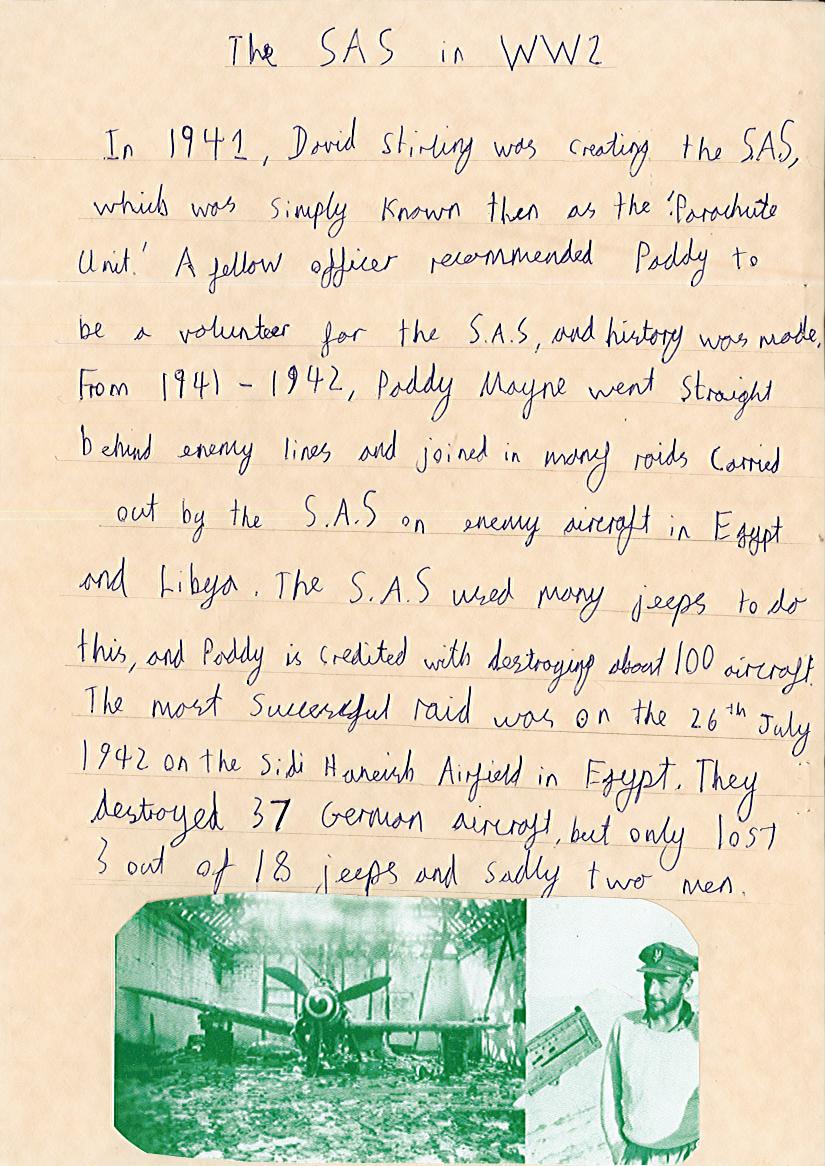 The SAS in WW2
In 1941, David Stirling was creating the S.A.S,
which was simply known then as the 'Parachute
Unit.' A fellow officer recommended Paddy to
be a volunteer for the S.A.S, and history was made.
From 1941 - 1942, Paddy Mayne went straight
behind enemy lines and joined in many raids carried
out by the S.A.S on enemy aircraft in Egypt
and Libya. The S.A.S used many jeeps to do
this, and Paddy is credited with destroying about 100 aircraft.
The most successful raid was on the 26th July
1942 on the Sidi Haneish Airfield in Egypt. They
destroyed 37 German aircraft, but only lost
3 out of 18 jeeps and sadly two men.